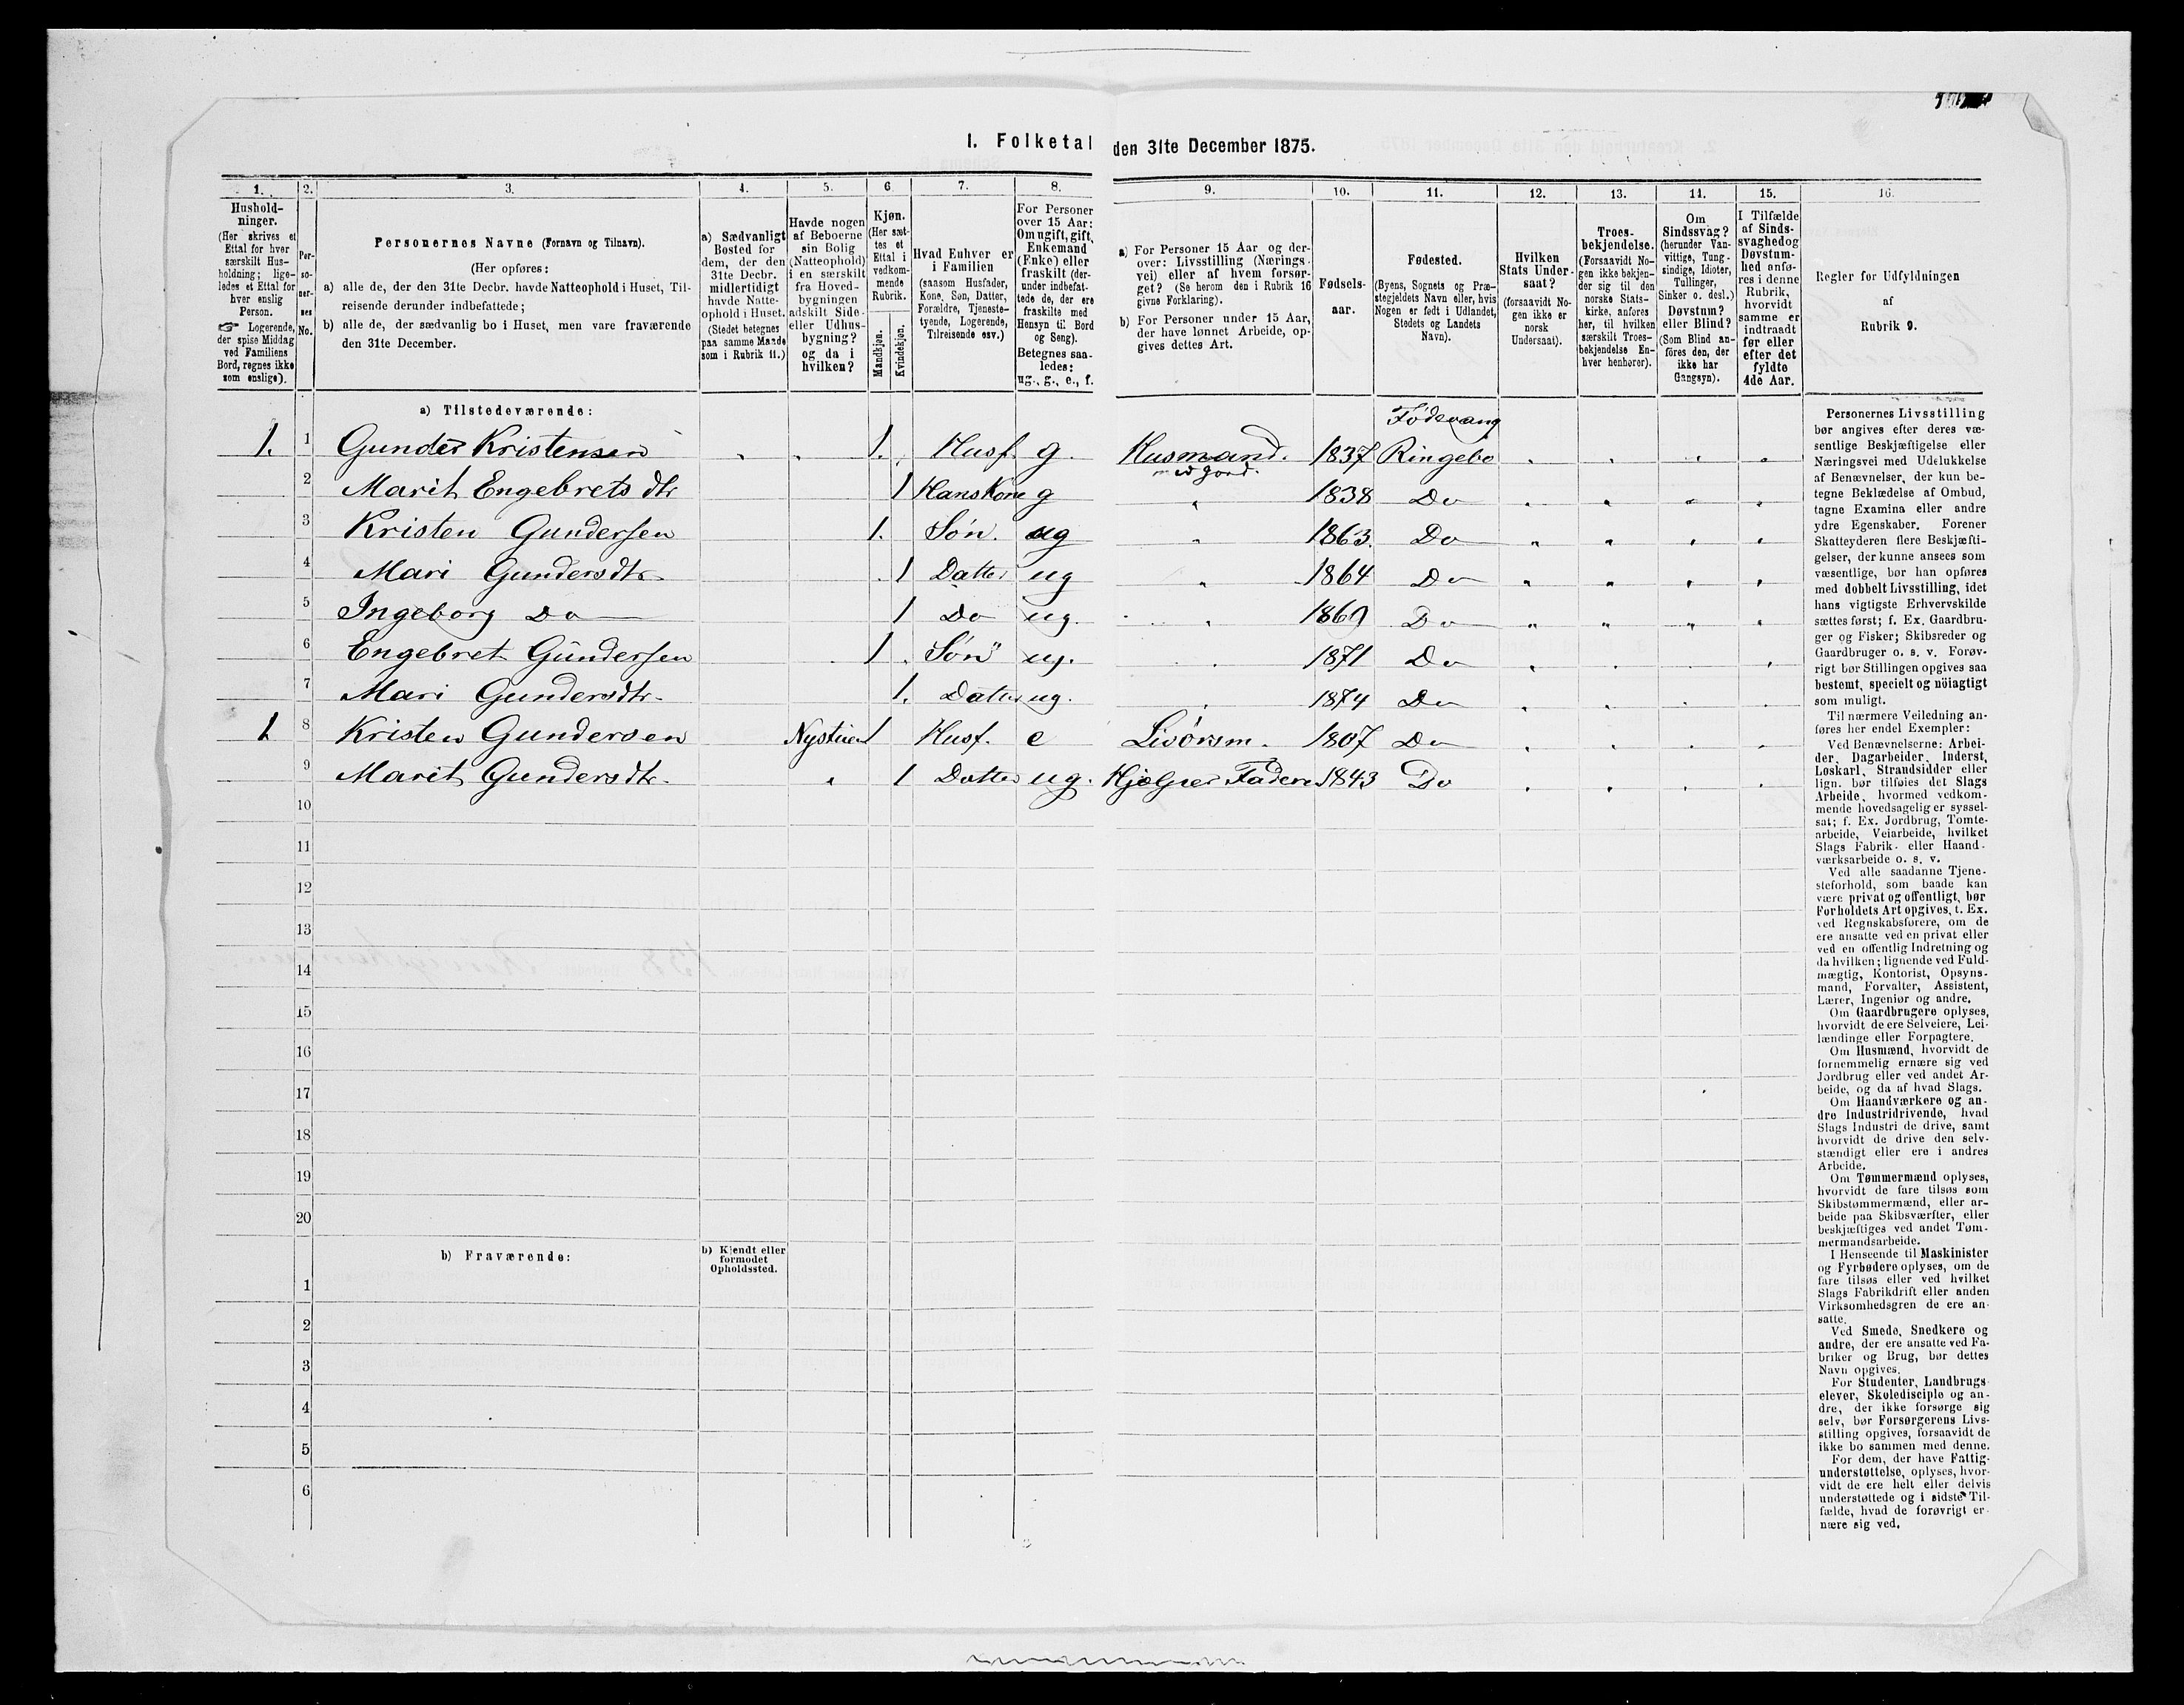 I. Folketal den 31te December 1875.
1. 2. 3. 4. 5. 6. 7. 8. 9. 10. 11. 12. 13. 14. 15. 16.
Hushold-
ninger.
(Her skrives et
Ettal for hver
særskilt Hus-
holdning; lige-
ledes et Ettal for
hver enslig
Person.
☞ Logerende,
der spise Middag
ved Familiens
Bord, regnes ikke
som enslige).
Per-
so-
ner-
nes
No.
Personernes Navne (Fornavn og Tilnavn).
(Her opføres:
a) alle de, der den 31te Decbr. havde Natteophold i Huset, Til-
reisende derunder indbefattede;
b) alle de, der sædvanlig bo i Huset, men vare fraværende
den 31te December.
a) Sædvanligt
Bosted for
dem, der den
31te Decbr.
midlertidigt
havde Natte-
ophold i Huset.
(Stedet betegnes
paa samme Maade
som i Rubrik 11.)
Havde nogen
af Beboerne
sin Bolig
(Natteophold)
i en særskilt
fra Hoved-
bygningen
adskilt Side-
eller Udhus-
bygning?
og da i
hvilken?
Kjøn.
(Her sæt-
tes et
Ettal i
vedkom-
mende
Rubrik.
Mandkjøn.
Kvindekjøn.
Hvad Enhver er
i Familien
(saasom Husfader,
Kone, Søn, Datter,
Forældre, Tjeneste-
tyende, Logerende,
Tilreisende osv.)
For Personer
over 15 Aar:
Om ugift, gift,
Enkemand
(Enke) eller
fraskilt (der-
under indbefat-
tede de, der ere
fraskilte med
Hensyn til Bord
og Seng).
Betegnes saa-
ledes:
ug., g., e., f.
a) For Personer 15 Aar og der-
over: Livsstilling (Nærings-
vei) eller af hvem forsør-
get? (Se herom den i Rubrik 16
givne Forklaring).
b) For Personer under 15 Aar,
der have lønnet Arbeide, op-
gives dettes Art.
Fødsels-
aar.
Fødested.
(Byens, Sognets og Præ-
stegjeldets Navn eller, hvis
Nogen er født i Udlandet,
Stedets og Landets
Navn).
Hvilken
Stats Under-
saat?
(forsaavidt No-
gen ikke er
norsk
Undersaat).
Troes-
bekjendelse.
(Forsaavidt No-
gen ikke bekjen-
der sig til den
norske Stats-
kirke, anføres
her, til hvilken
særskilt Troes-
bekjendelse En-
hver henhører).
Om
Sindssvag?
(herunder Van-
vittige, Tung-
sindige, Idioter,
Tullinger,
Sinker o. desl.)
Døvstum?
eller Blind?
(Som Blind an-
föres den, der
ikke har
Gangsyn).
I Tilfælde
af Sinds-
svaghed og
Døvstum-
hed anfø-
res i denne
Rubrik,
hvorvidt
samme er
indtraadt
før eller
efter det
fyldte
4de Aar.
Regler for Udfyldningen
af
Rubrik 9.
a) Tilstedeværende:
Fødevang
1. 1 Gunder Kristensen 1. Husf. g. Husmand. 1837 Ringebo
med Jord.
2 Marit Engebrets dtr 1 Hans Kone g 1838 Do
3 Kristen Gundersen 1. Søn. ug 1863. Do
4 Mari Gundersdtr. 1 Datter ug 1864 Do
5 Ingeborg Do 1 Do ug. 1869 Do
6 Engebret Gundersen 1 Søn ug. 1871 Do
7 Mari Gundersdtr. 1. Datter ug. 1874 Do
1 8 Kristen Gundersen Nystuen 1 Husf. e Livørsm. 1807 Do
9 Marit Gundersdtr. 1 Datter ug. Hjælper Faderen 1843 Do
10
11
12
13
14
15
16
17
18
19
20
b) Fraværende:
b) Kjendt eller
formodet
Opholdssted.
1
2
3
4
5
6
Personernes Livsstilling
bør angives efter deres væ-
sentlige Beskjæftigelse eller
Næringsvei med Udelukkelse
af Benævnelser, der kun be-
tegne Beklædelse af Ombud,
tagne Examina eller andre
ydre Egenskaber. Forener
Skatteyderen flere Beskjæfti-
gelser, der kunne ansees som
væsentlige, bør han opføres
med dobbelt Livsstilling, idet
hans vigtigste Erhvervskilde
sættes først; f. Ex. Gaardbru-
ger og Fisker; Skibsreder og
Gaardbruger o. s. v. Forøv-
rigt bør Stillingen opgives saa
bestemt, specielt og nöiagtigt
som muligt.
Til nærmere Veiledning an-
føres her endel Exempler:
Ved Benævnelserne: Arbei-
der, Dagarbeider, Inderst,
Løskarl, Strandsidder eller
lign. bør tilføies det Slags
Arbeide, hvormed vedkom-
mende hovedsagelig er syssel-
sat; f. Ex. Jordbrug, Tomte-
arbeide, Veiarbeide, hvilket
Slags Fabrik- eller Haand-
værksarbeide o. s. v.
Ved alle saadanne Tjene-
steforhold, som baade kan
være privat og offentligt, bør
Forholdets Art opgives, t. Ex.
ved Regnskabsførere, om de
ere ansatte ved en privat eller
ved en offentlig Indretning og
da hvilken; lignende ved Fuld-
mægtig, Kontorist, Opsyns-
mand, Forvalter, Assistent,
Lærer, Ingeniør og andre.
Om Gaardbrugere oplyses,
hvorvidt de ere Selveiere, Lei-
lændinge eller Forpagtere.
Om Husmænd, hvorvidt de
fornemmelig ernære sig ved
Jordbrug eller ved andet Ar-
beide, og da af hvad Slags.
Om Haandværkere og an-
dre Industridrivende, hvad
Slags Industri de drive, samt
hvorvidt de drive den selv-
stændigt eller ere i andres
Arbeide.
Om Tømmermænd oplyses,
hvorvidt de fare tilsøs som
Skibstømmermænd, eller ar-
beide paa Skibsværfter, eller
beskjæftiges ved andet Tøm-
mermandsarbeide.
I Henseende til Maskinister
og Fyrbødere oplyses, om de
fare tilsøs eller ved hvilket
Slags Fabrikdrift eller anden
Virksomhedsgren de ere an-
satte.
Ved Smede, Snedkere og
andre, der ere ansatte ved Fa-
briker og Brug, bør dettes
Navn opgives.
For Studenter, Landbrugs-
elever, Skoledisciple og an-
dre, der ikke forsørge sig
selv, bør Forsørgerens Livs-
stilling opgives, forsaavidt de
ikke bo sammen med denne.
For dem, der have Fattig-
understøttelse, oplyses, hvor-
vidt de ere helt eller delvis
understøttede og i sidste Til-
fælde, hvad de forøvrigt er-
nære sig ved.